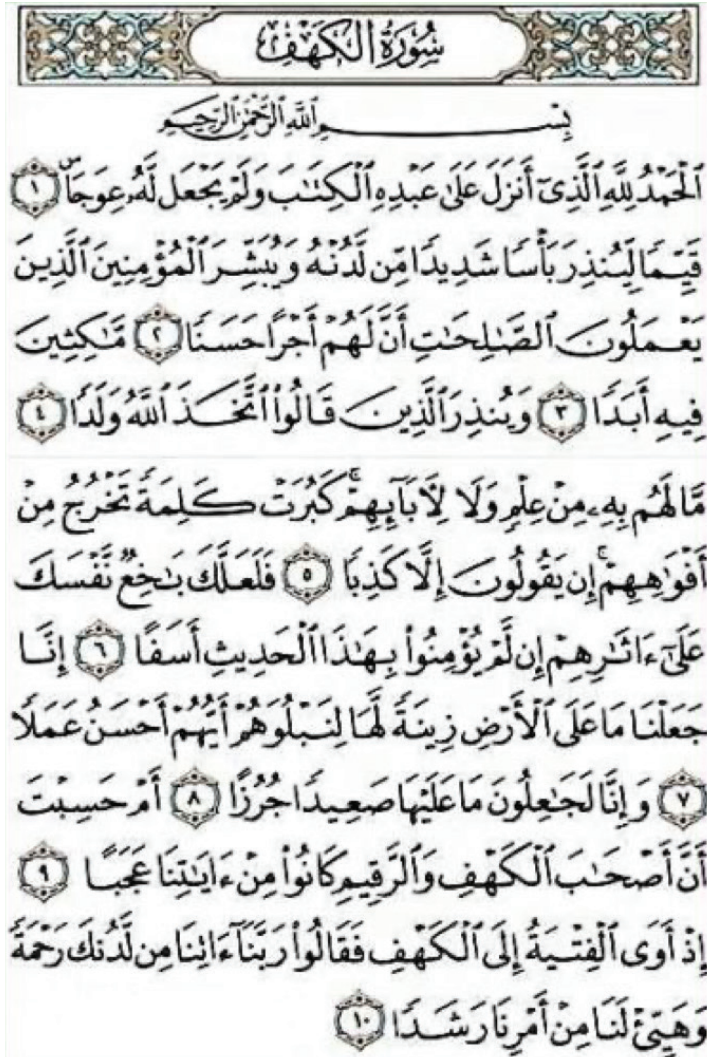 سُورَةُ الكَهْفِ
بِسْمِ ٱللَّهِ ٱلرَّحْمَٰنِ ٱلرَّحِيمِ
ٱلْحَمْدُ لِلَّهِ ٱلَّذِىٓ أَنزَلَ عَلَىٰ عَبْدِهِ ٱلْكِتَٰبَ وَلَمْ يَجْعَل لَّهُۥ عِوَجَاۜ ١
قَيِّمًا لِّيُنذِرَ بَأْسًا شَدِيدًا مِّن لَّدُنْهُ وَيُبَشِّرَ ٱلْمُؤْمِنِينَ ٱلَّذِينَ
يَعْمَلُونَ ٱلصَّٰلِحَٰتِ أَنَّ لَهُمْ أَجْرًا حَسَنًا ٢ مَّٰكِثِينَ
فِيهِ أَبَدًا ٣ وَيُنذِرَ ٱلَّذِينَ قَالُوا۟ ٱتَّخَذَ ٱللَّهُ وَلَدًا ٤
مَّا لَهُم بِهِۦ مِنْ عِلْمٍ وَلَا لِءَابَآئِهِمْ ۚ كَبُرَتْ كَلِمَةً تَخْرُجُ مِنْ
أَفْوَٰهِهِمْ ۚ إِن يَقُولُونَ إِلَّا كَذِبًا ٥ فَلَعَلَّكَ بَٰخِعٌ نَّفْسَكَ
عَلَىٰٓ ءَاثَٰرِهِمْ إِن لَّمْ يُؤْمِنُوا۟ بِهَٰذَا ٱلْحَدِيثِ أَسَفًا ٦ إِنَّا
جَعَلْنَا مَا عَلَى ٱلْأَرْضِ زِينَةً لَّهَا لِنَبْلُوَهُمْ أَيُّهُمْ أَحْسَنُ عَمَلًا
٧ وَإِنَّا لَجَٰعِلُونَ مَا عَلَيْهَا صَعِيدًا جُرُزًا ٨ أَمْ حَسِبْتَ
أَنَّ أَصْحَٰبَ ٱلْكَهْفِ وَٱلرَّقِيمِ كَانُوا۟ مِنْ ءَايَٰتِنَا عَجَبًا ٩
إِذْ أَوَى ٱلْفِتْيَةُ إِلَى ٱلْكَهْفِ فَقَالُوا۟ رَبَّنَآ ءَاتِنَا مِن لَّدُنكَ رَحْمَةً
وَهَيِّئْ لَنَا مِنْ أَمْرِنَا رَشَدًا ١٠